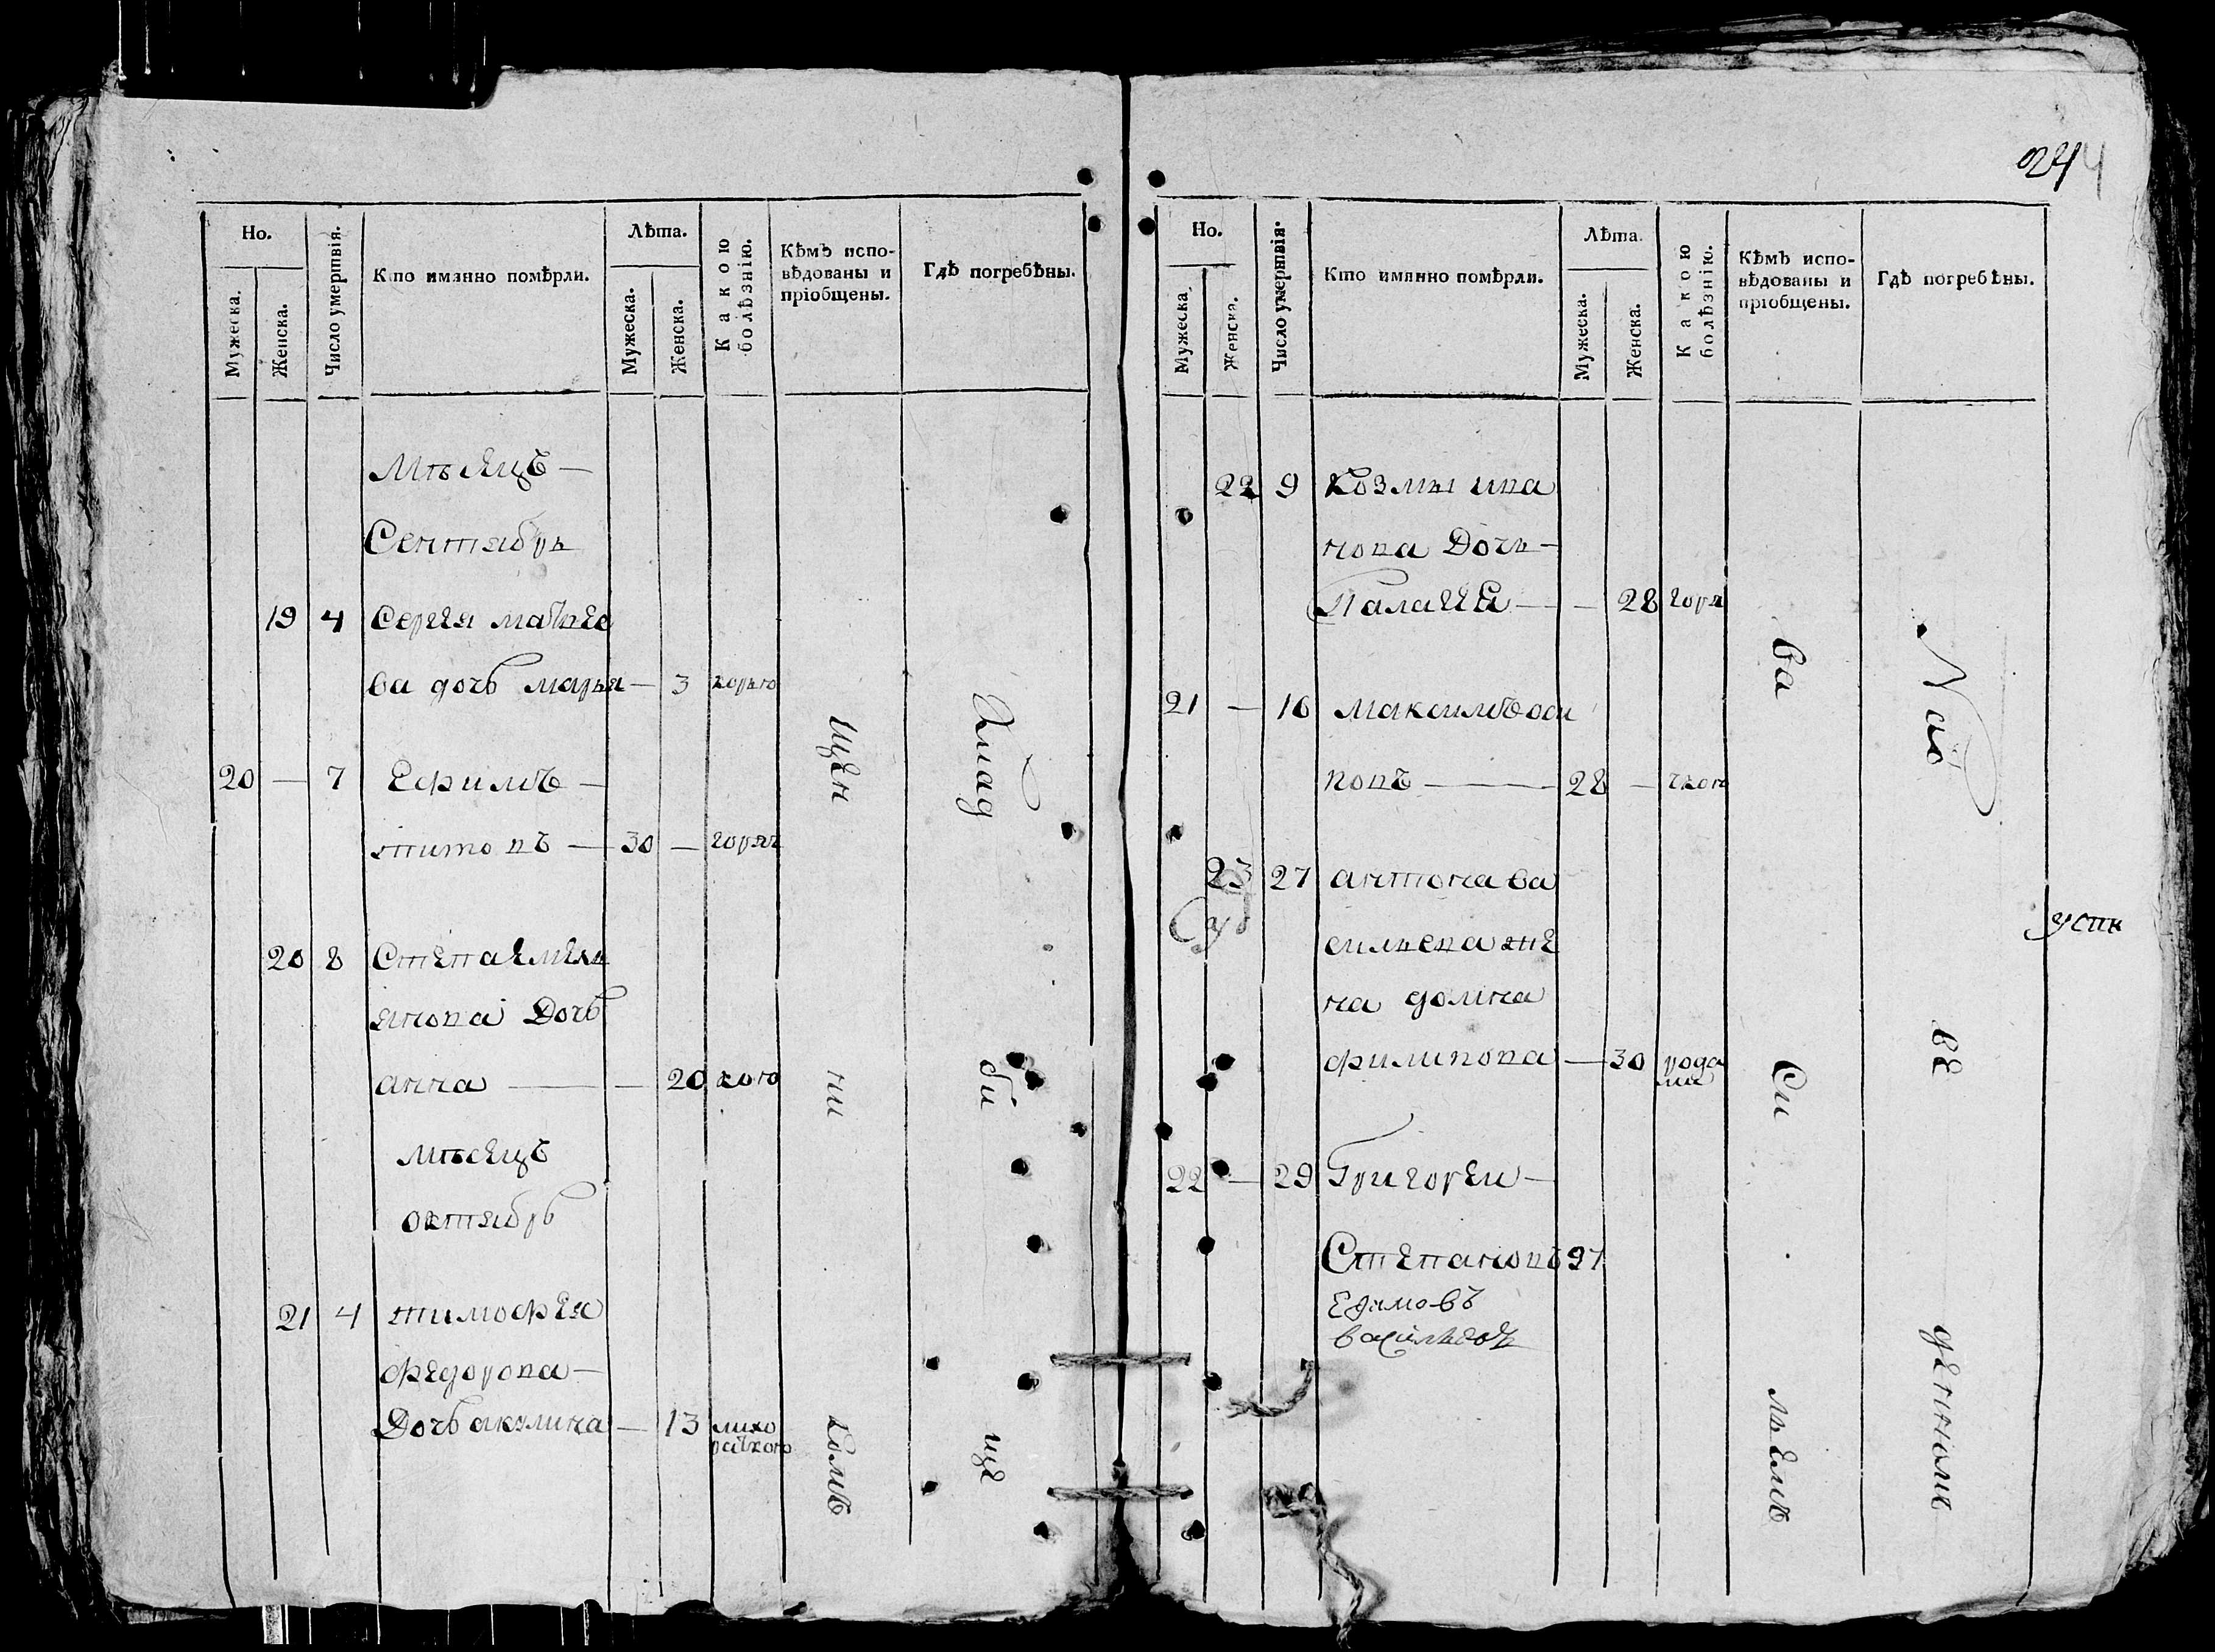 244
Но.
Мужеска.
Женска.
Число умертвія.
Кто имянно помѣрли.
Лѣта.
Мужеска.
Женска.
Какою болѣзнію.
Кѣмъ испо-
вѣдованы и
пріобщены.
Гдѣ погребѣны.
Мѣсяцъ —
Сентябрь
19 4 Сергея матвее
ва дочь марья — 3 корью
20 — 7 Ефимъ —
титовъ — 30 — горяч
20 8 Степа емели
янова Дочь
анна — — 20
мѣсецъ
октябрь
21 4 тимофея
федорова —
Дочь акулина — 13 лихо
раткою
Щен
ни
комъ
Кла
би
ще
Но.
Мужеска.
Женска.
Число умертвія.
Кто имянно помѣрли.
Лѣта.
Мужеска.
Женска.
Какою болѣзнію.
Кѣмъ испо-
вѣдованы и
пріобщены.
Гдѣ погребѣны.
22 9 Козмы ива
нова Дочь —
Палагея — — 28 горя
21 — 16 Максимъ оси
повъ — 28 —
23 27 антона ва
сильева же
на домна
филипова — 30 рода
ми
22 — 29 Григореи —
Степановъ 97
Ва
си
льемъ
ве
денномъ